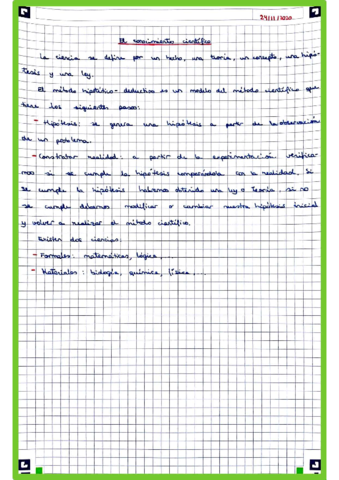 24/11/2020
El conocimiento científico
La ciencia se define por un hecho, una teoría, un concepto, una hipó-
tesis y una ley.
El método hipotético-deductivo es un modelo del método científico que
tiene los siguientes pasos:
- Hipótesis: se genera una hipótesis a partir de la observación
de un problema.
- Constratar realidad: a partir de la experimentación verifica-
mos si se cumple la hipótesis comparándola con la realidad. Si
se cumple la hipótesis habremos obtenido una ley o teoría, si no
se cumple debemos modificar o cambiar nuestra hipótesis inicial
y volver a realizar el método científico.
Existen dos ciencias:
- Formales: matemáticas, lógica,...
- Materiales: biología, química, física,...